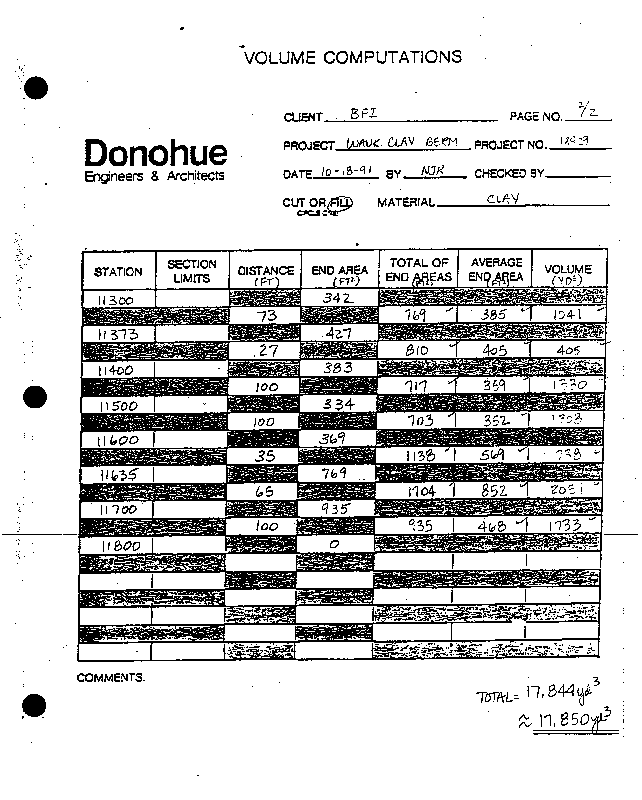 VOLUME COMPUTATIONS
CLIENT BFI PAGE NO. 2/2
Donohue
Engineers & Architects
PROJECT WAUK. CLAY BERM PROJECT NO.
DATE 10-18-91 BY NJR CHECKED BY
CUT OR FILL MATERIAL CLAY
CIRCLE ONE
STATION SECTION LIMITS DISTANCE (FT) END AREA (FT²) TOTAL OF END AREAS (FT²) AVERAGE END AREA (FT²) VOLUME (YD³)
11300 342
73 769 ✓ 385 ✓ 1041 ✓
11373 427
27 810 ✓ 405 ✓ 405 ✓
11400 383
100 717 ✓ 359 ✓ 1330 ✓
11500 334
100 703 ✓ 352 ✓
11600 369
35 1138 ✓ 569 ✓ 738 ✓
11635 769
65 1704 ✓ 852 ✓ 2051 ✓
11700 935
100 935 ✓ 468 ✓ 1733 ✓
11800 0
COMMENTS.
TOTAL = 17,844 yd³
≈ 17,850 yd³